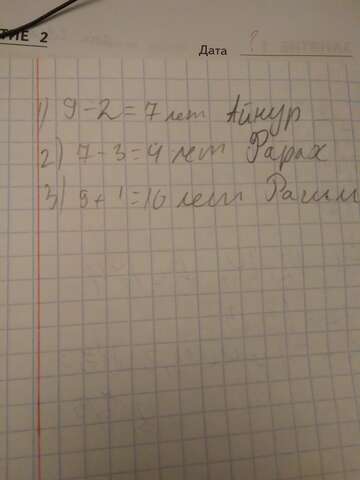 ТИЕ 2
Дата
1) 9-2=7 лет Айнур
2) 7-3=4 лет Фарах
3) 9+1=10 лет Рашм